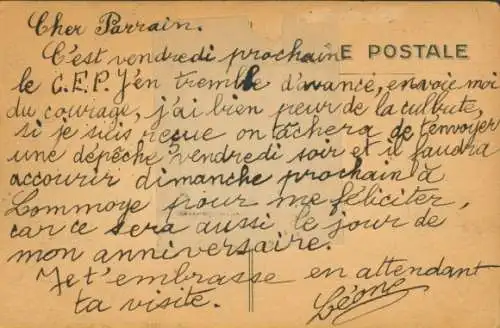 Cher Parrain.
C'est vendredi prochain E POSTALE
le C.E.P. J'en tremble d'avance, envoie moi
du courage, j'ai bien peur de la culbute,
si je suis reçue on tâchera de t'envoyer
une dépêche vendredi soir et il faudra
accourir dimanche prochain à
Lommoye pour me féliciter,
car ce sera aussi le jour de
mon anniversaire.
Je t'embrasse en attendant
ta visite. Léone